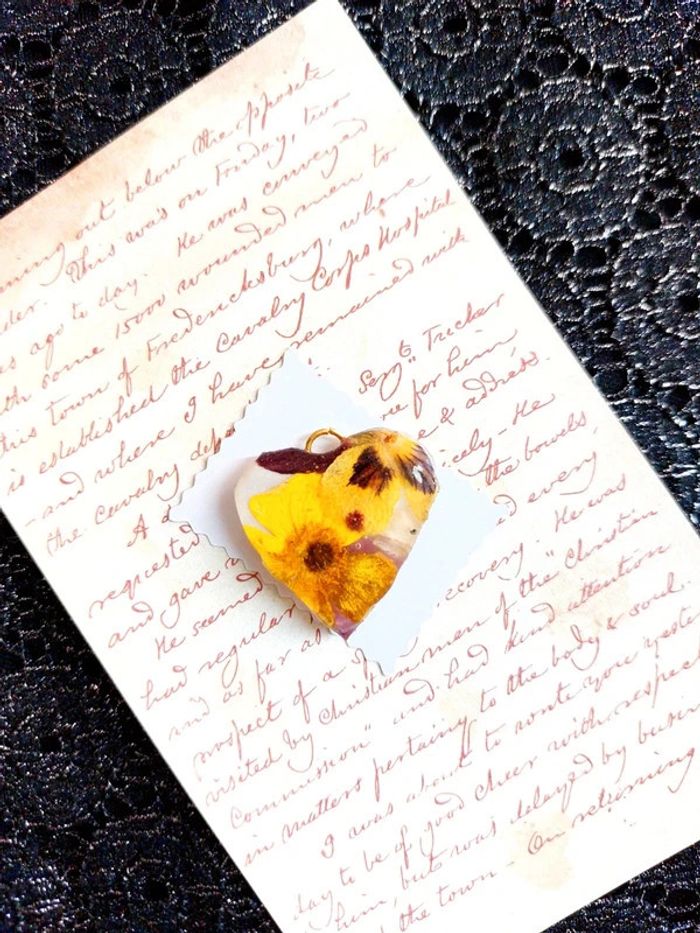 out below the opposite
This was on Friday, two
ago to day. He was conveyed
some 15000 wounded men to
this town of Fredericksburg, where
is established the Cavalry Corps Hospital
- and where I have remained with
the Cavalry
A Sergt Tucker
requested for him
and gave & address.
He seemed - He
had regular the bowels,
and as far as every
prospect of a recovery. He was
visited by Christian men of the "Christian
Commission" and had kind attention
in matters pertaining to the body & soul.
I was about to write you
day to be of good cheer with respect
him, but was delayed by
the town - On returning